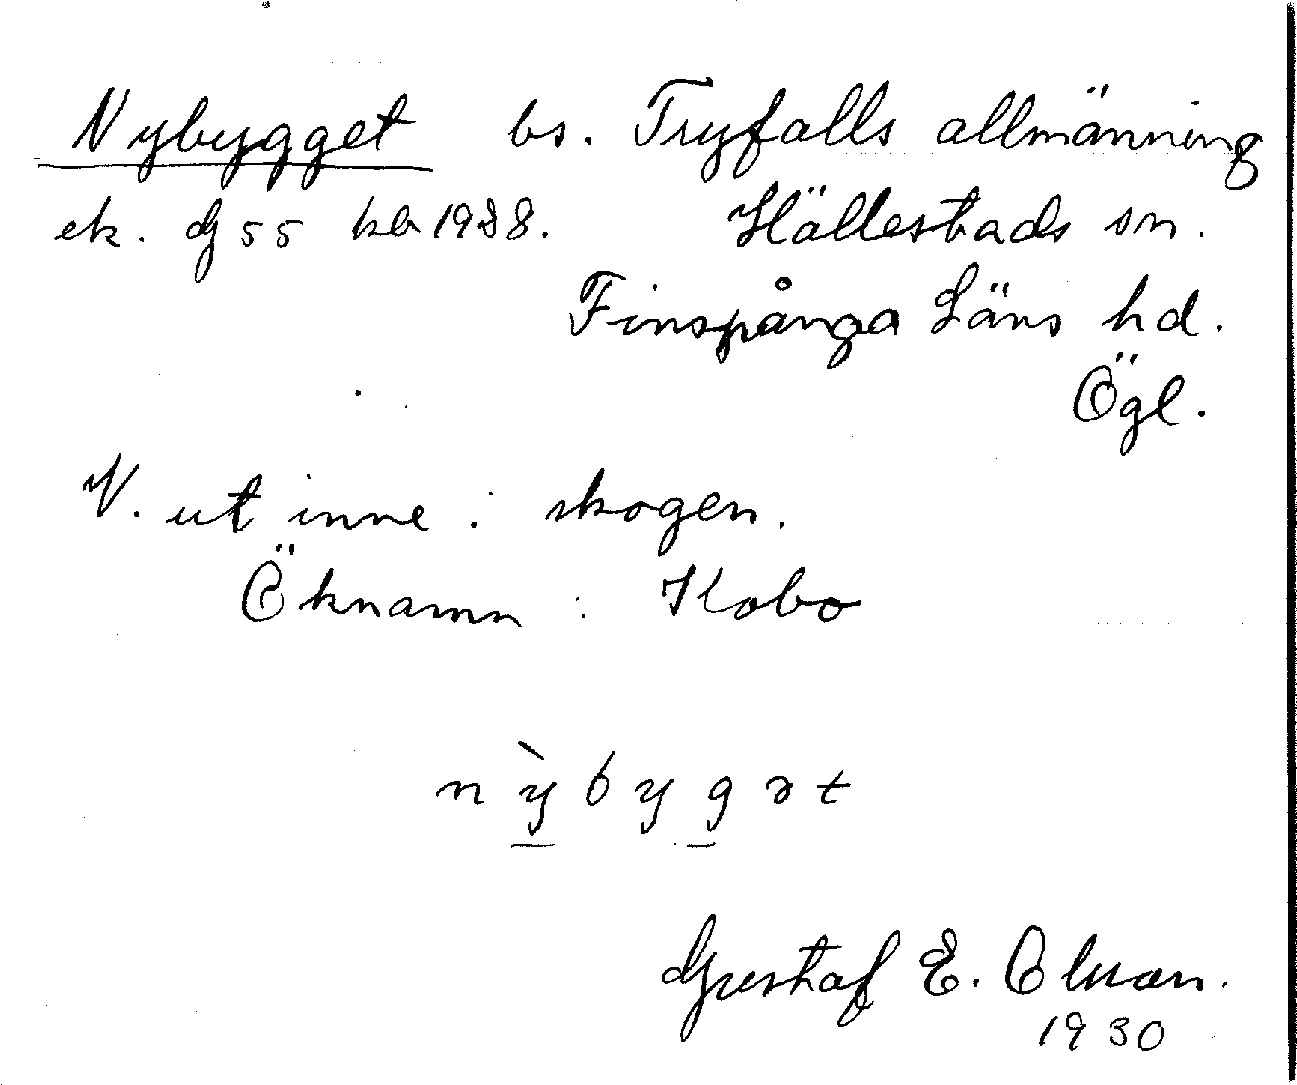 Nybygget bs. Tryfalls allmänning
ek. G 55 kb 1928. Hällestads sn.
Finspånga Läns hd.
Ögl.
N. ut inne i skogen.
Öknamn: Kobo
nỳbygət
Gustaf E. Olsson.
1930